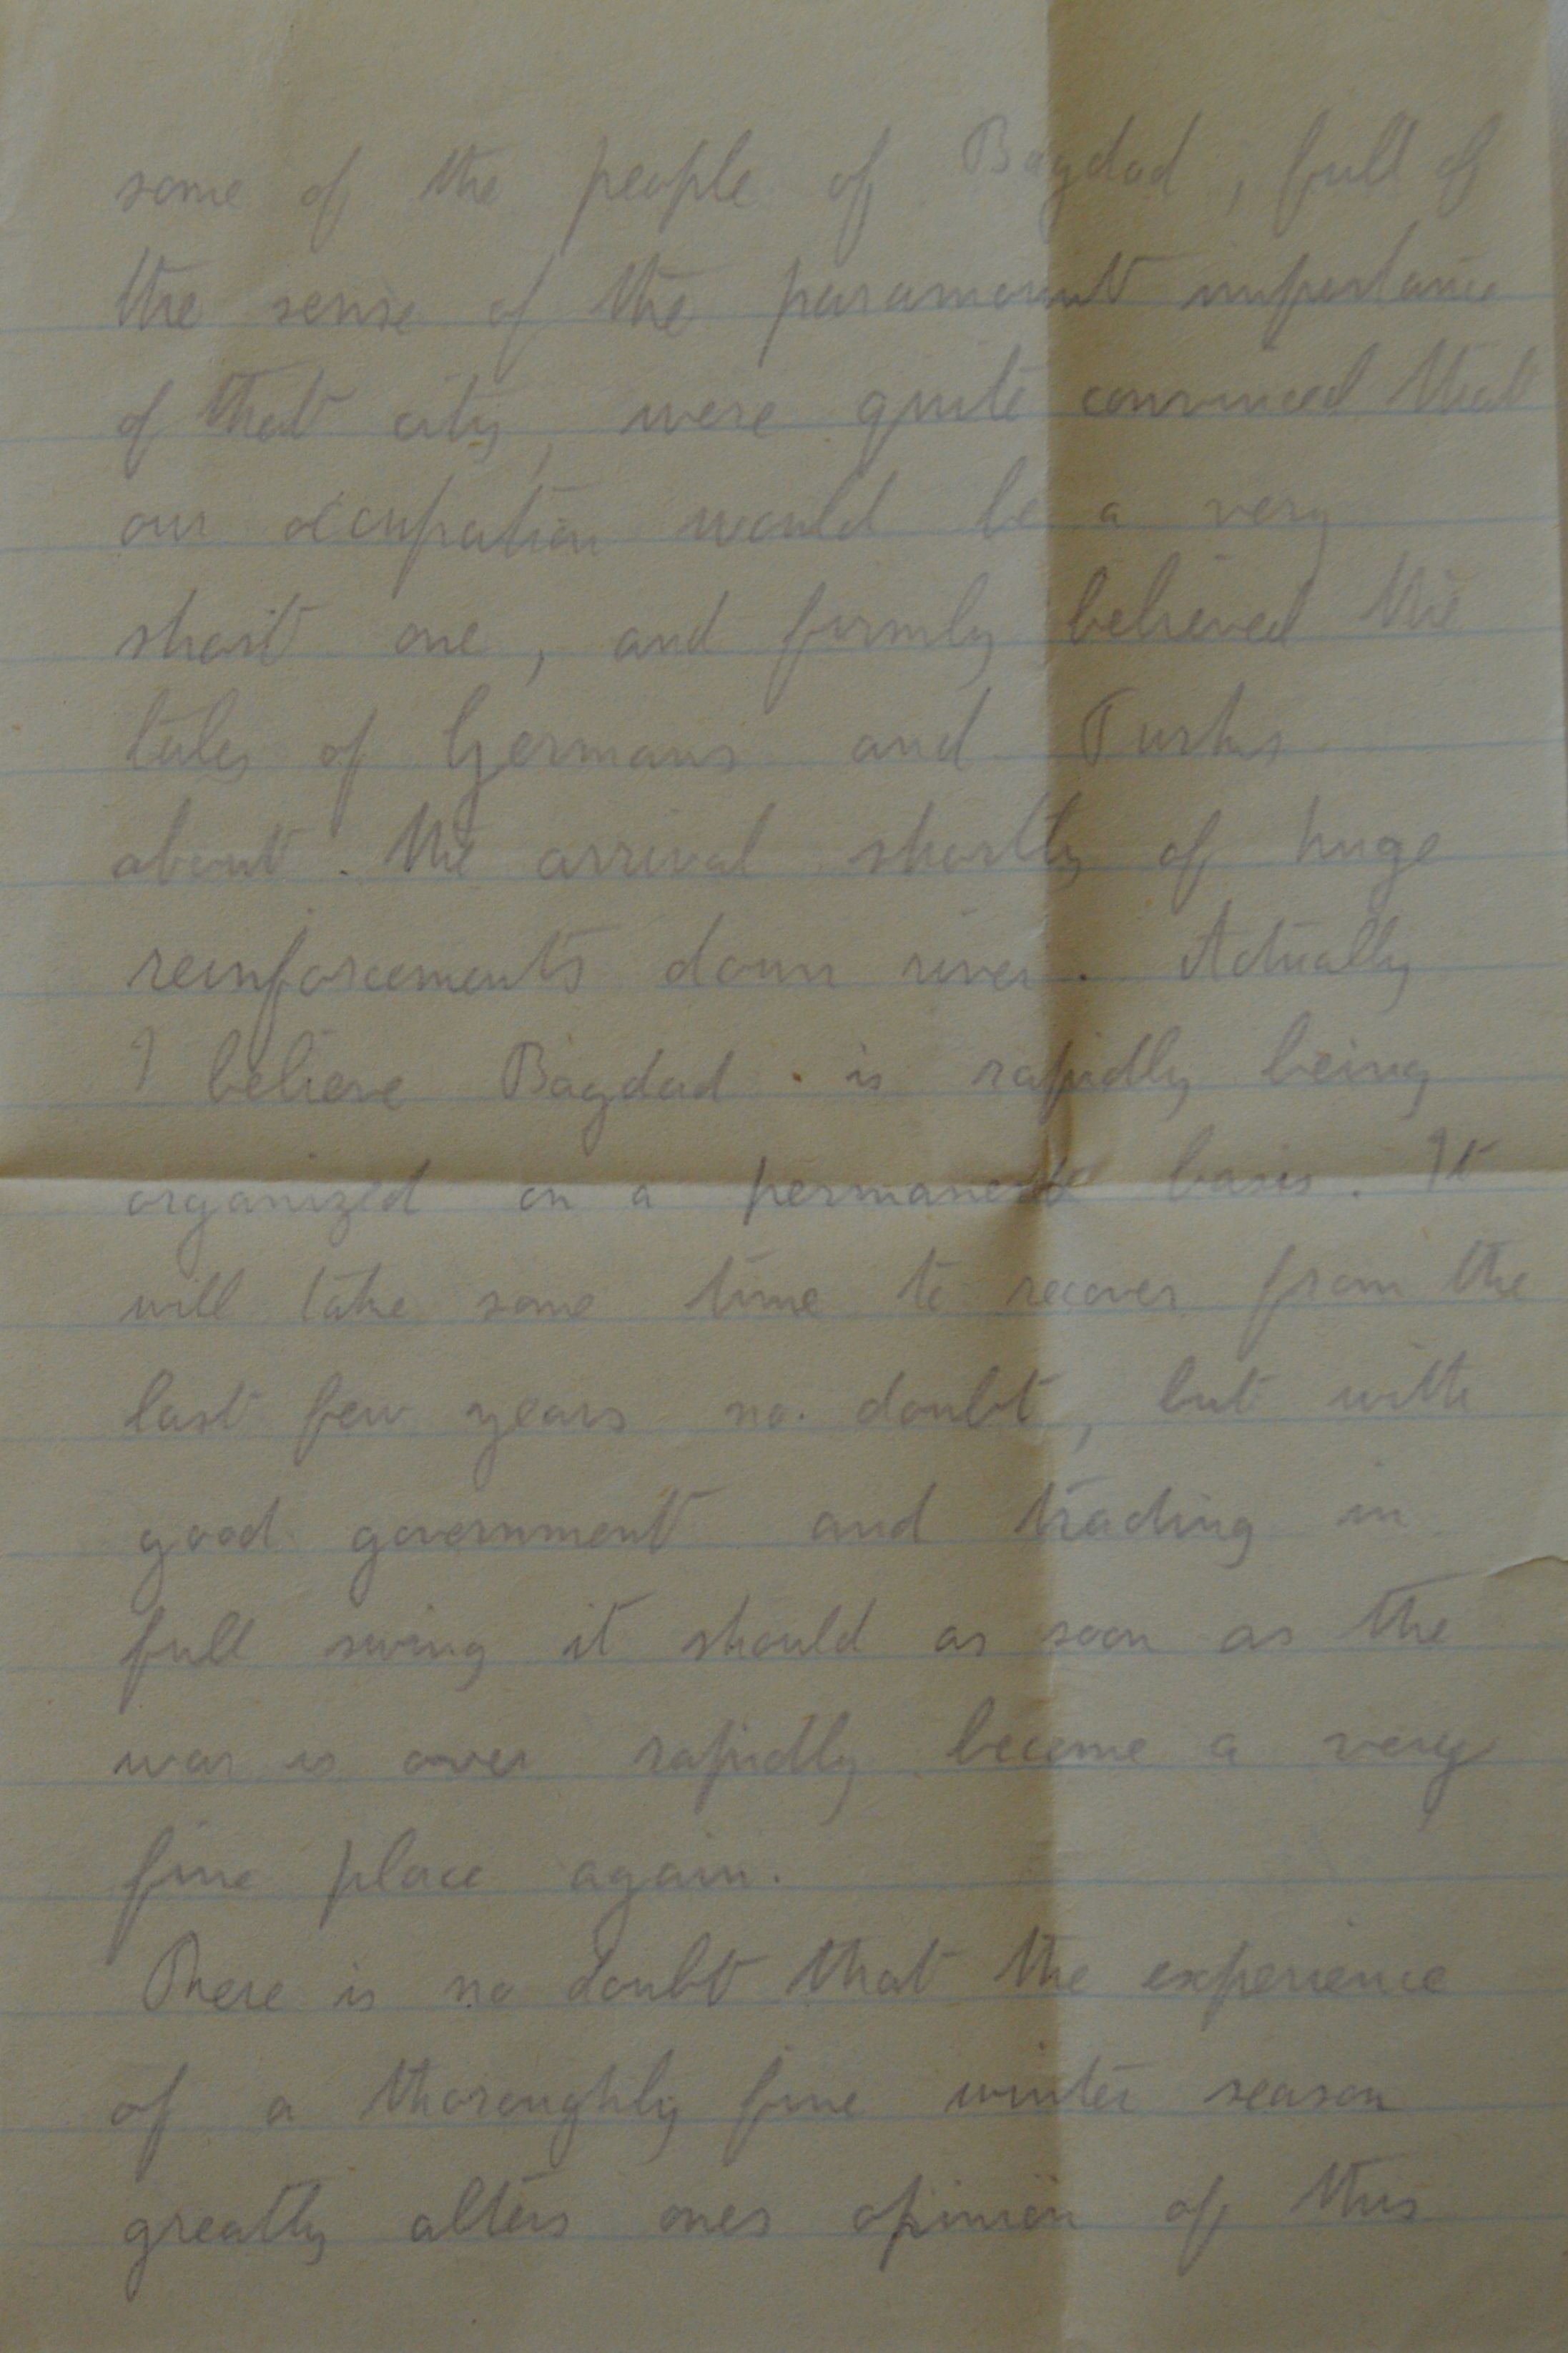 some of the people of Bagdad, full of
the sense of the paramount importance
of that city, were quite convinced that
our occupation would be a very
short one, and firmly believed the
tales of Germans and Turks
about the arrival shortly of huge
reinforcements down river. Actually
I believe Bagdad is rapidly being
organized on a permanent basis. It
will take some time to recover from the
last few years no doubt, but with
good government and trading in
full swing it should as soon as the
war is over rapidly become a very
fine place again.
There is no doubt that the experience
of a thoroughly fine winter season
greatly alters ones opinion of this